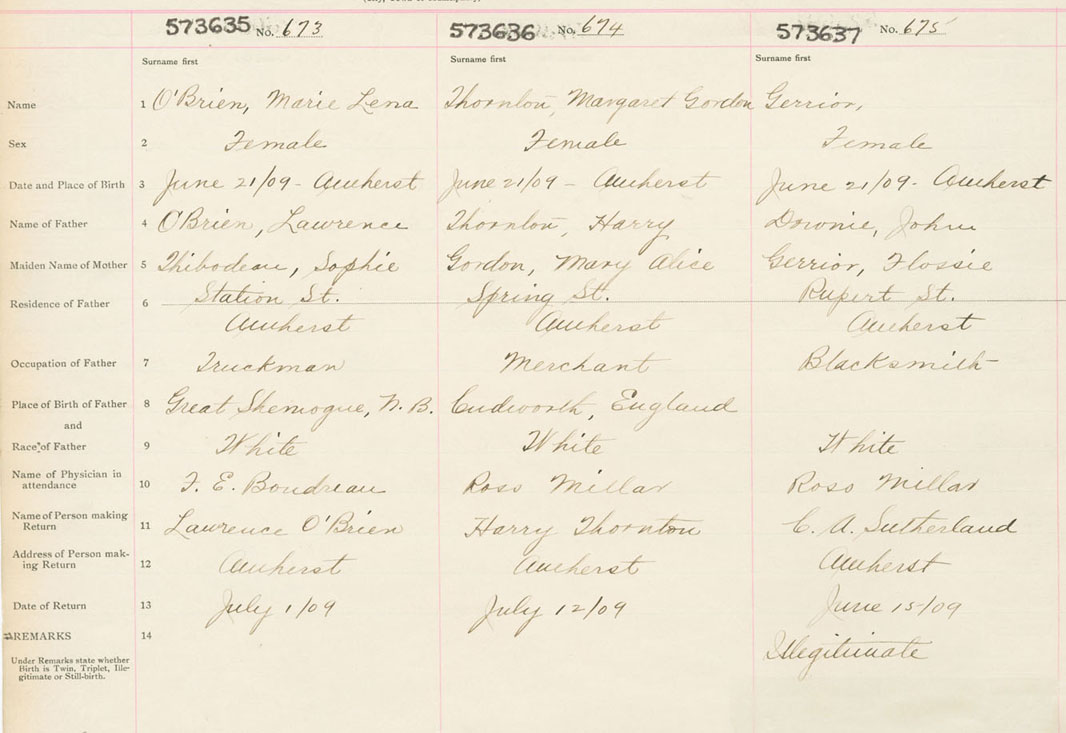 573635 No. 673 573636 No. 674 573637 No. 675
Surname first Surname first Surname first
Name 1 O'Brien, Marie Lena Thornton, Margaret Gordon Gerrior,
Sex 2 Female Female Female
Date and Place of Birth 3 June 21/09 - Amherst June 21/09 - Amherst June 21/09 - Amherst
Name of Father 4 O'Brien, Lawrence Thornton, Harry Downie, John
Maiden Name of Mother 5 Thibodeau, Sophie Gordon, Mary Alice Gerrior, Flossie
Residence of Father 6 Station St. Spring St. Rupert St.
Amherst Amherst Amherst
Occupation of Father 7 Truckman Merchant Blacksmith
Place of Birth of Father 8 Great Shemogue, N. B. Cudworth, England
and
Race of Father 9 White White White
Name of Physician in
attendance 10 F. E. Boudreau Ross Millar Ross Millar
Name of Person making
Return 11 Lawrence O'Brien Harry Thornton C. A. Sutherland
Address of Person mak-
ing Return 12 Amherst Amherst Amherst
Date of Return 13 July 1/09 July 12/09 June 15/09
REMARKS 14
Illegitimate
Under Remarks state whether
Birth is Twin, Triplet, Ille-
gitimate or Still-birth.